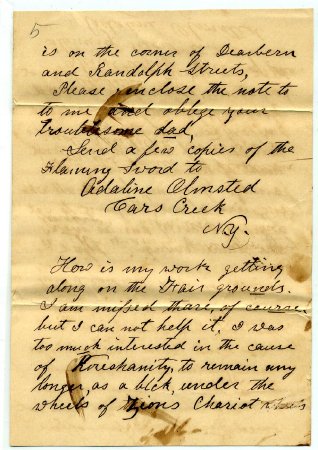 5
is on the corner of Dearbern
and Randolph streets,
Please reinclose the note to
to me and oblege your
troublesome dad,
Send a few copies of the
Flaming Sword to
Adaline Olmsted
Tars Creek
N.Y.
How is my work getting
along on the Fair grounds.
I am missed thare, of course
but I can not help it, I was
too much interested in the cause
of Koreshanity, to remain any
longer, as a blok, under the
wheels of Chariot